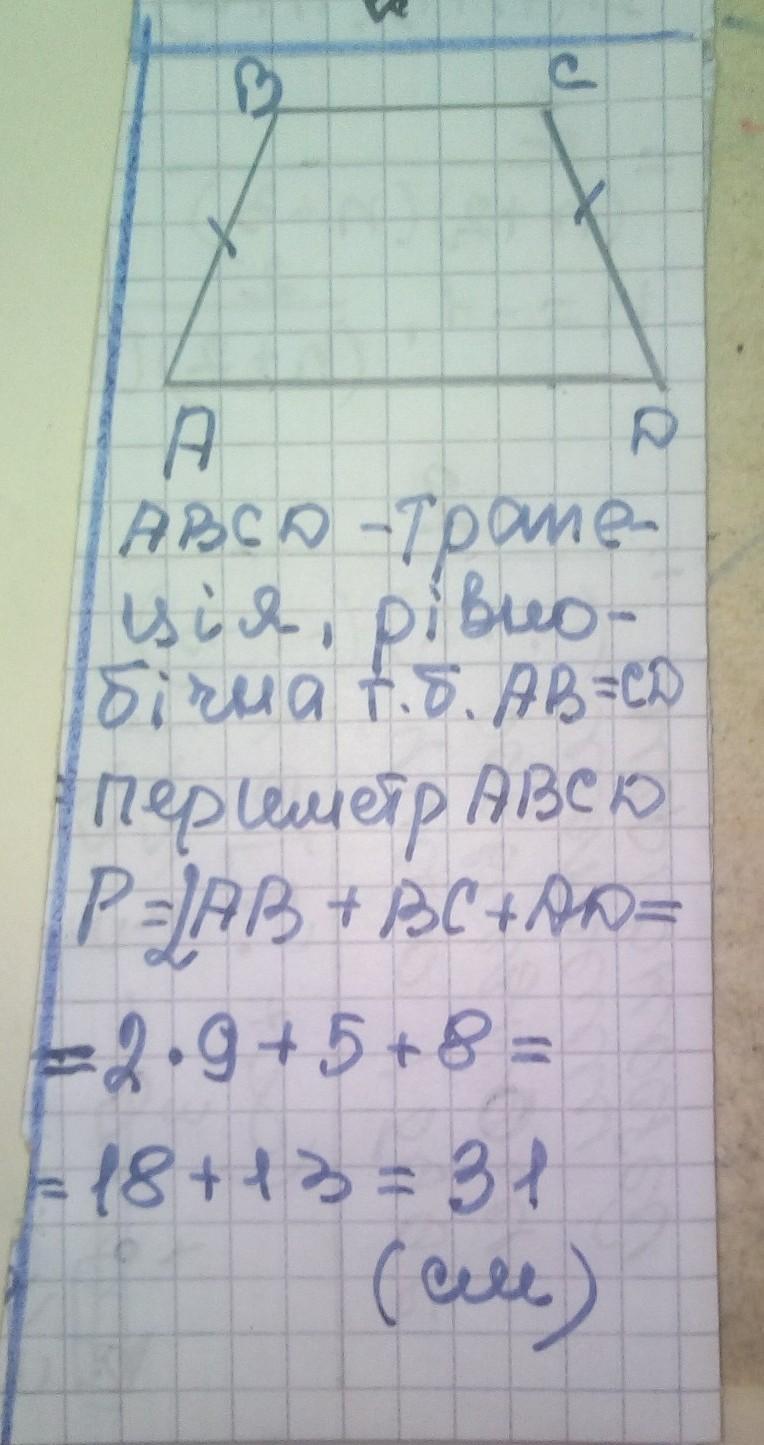 B C
A D
ABCD - трапе-
ція, рівно-
бічна т.б. AB=CD
периметр ABCD
P=2AB + BC + AD=
= 2·9 + 5 + 8 =
= 18 + 13 = 31
(см)